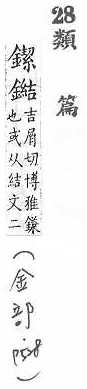 28
類篇
䥛
吉屑切博雅鎌
也或从結文二
(金部